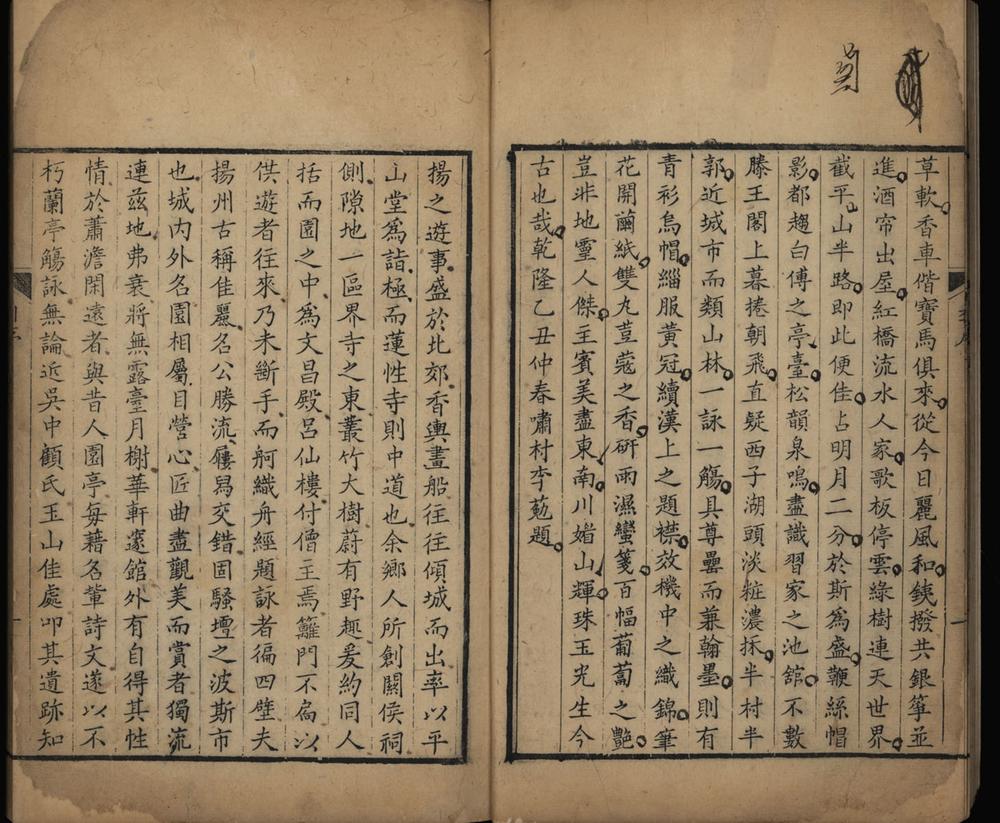 草軟香車偕寶馬俱來從今日麗風和銕撥共銀箏並
進酒帘出屋紅橋流水人家歌板停雲綠樹連天世界
截平山半路即此便佳占明月二分於斯爲盛鞭絲帽
影都趨白傅之亭臺松韻泉鳴盡識習家之池舘不數
滕王閣上暮捲朝飛直疑西子湖頭淡粧濃抹半村半
郭近城市而類山林一詠一觴具尊罍而兼翰墨則有
青衫烏帽緇服黃冠續漢上之題襟效機中之織錦筆
花開繭紙雙丸荳蔻之香硏雨濕蠻箋百幅葡萄之艷
豈非地靈人傑主賓美盡東南川媚山輝珠玉光生今
古也哉乾隆乙丑仲春嘯村李葂題
揚之遊事盛於北郊香輿畫船往往傾城而出率以平
山堂爲詣極而蓮性寺則中道也余鄉人所創關侯祠
側隙地一區界寺之東叢竹大樹蔚有野趣爰約同人
括而園之中爲文昌殿呂仙樓付僧主焉籬門不扃以
供遊者往來乃未斷手而舸織舟經題詠者徧四壁夫
揚州古稱佳麗名公勝流屨舄交錯固騷壇之波斯市
也城內外名園相屬目營心匠曲盡觀美而賞者獨流
連茲地弗衰將無露臺月榭華軒邃館外有自得其性
情於蕭澹閑遠者與昔人園亭每藉名輩詩文遂以不
朽蘭亭觴詠無論近吳中顧氏玉山佳處叩其遺跡知